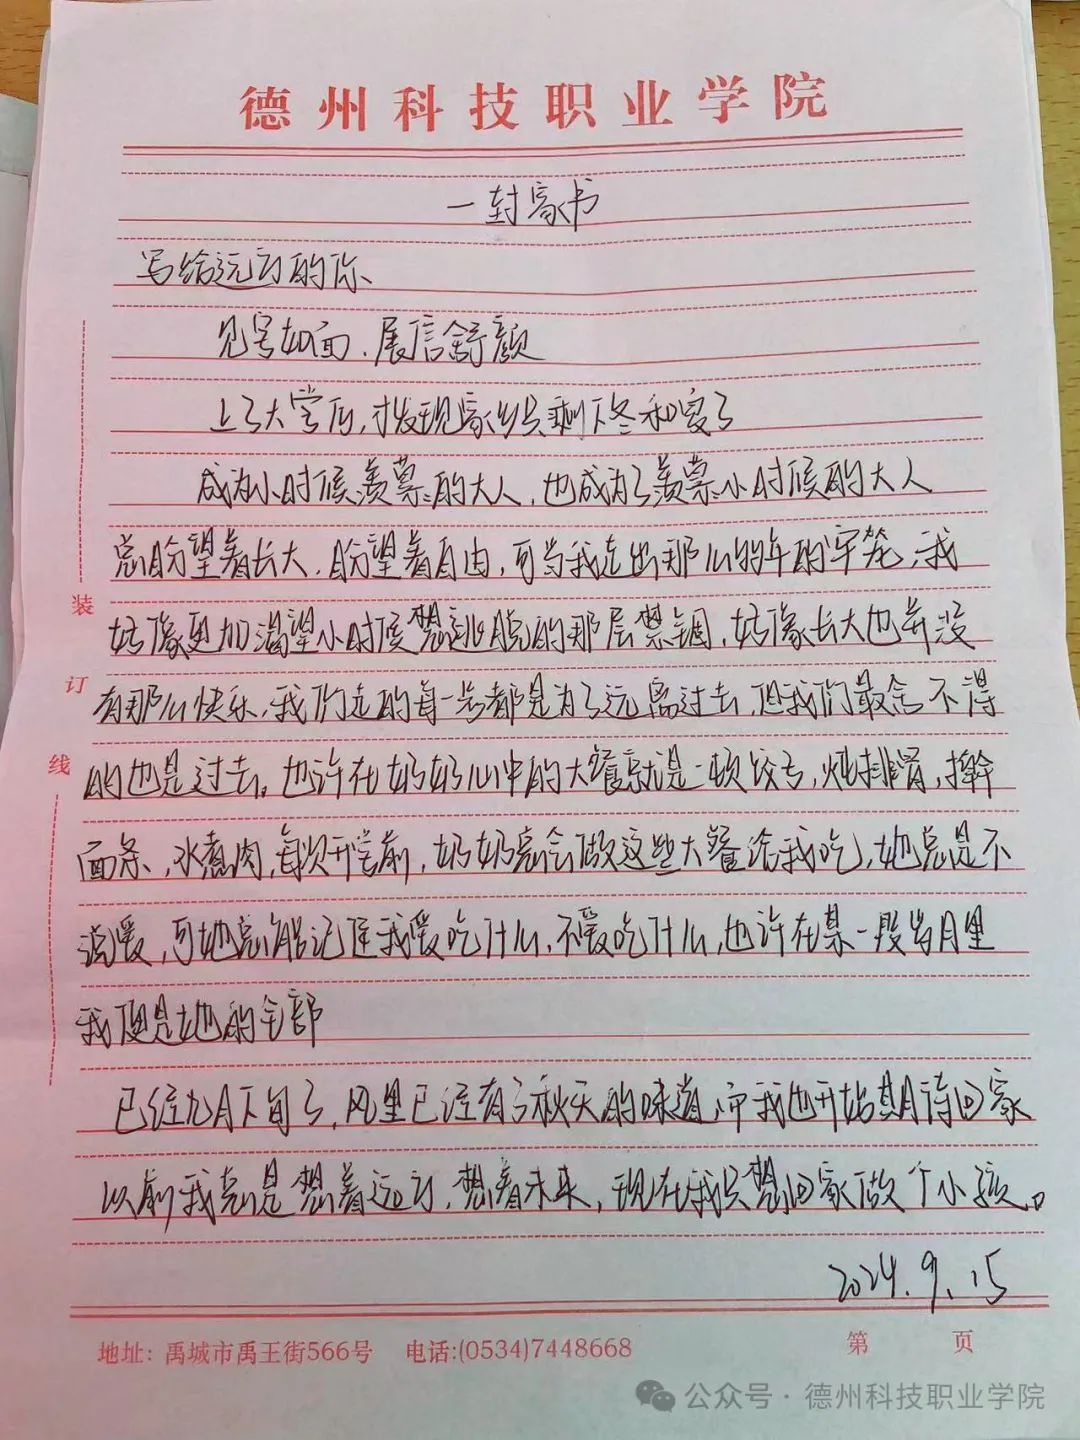 德州科技职业学院
一封家书
写给远方的你、
见字如面.展信舒颜
上了大学后,才发现家乡只剩下冬和夏了
成为小时候羡慕的大人,也成为了羡慕小时候的大人
总盼望着长大.盼望着自由,可当我走出那么多年的牢笼,我
好像更加渴望小时候想逃脱的那层禁锢,好像长大也并没
有那么快乐,我们走的每一步都是为了远离过去,但我们最舍不得
的也是过去。也许在奶奶心中的大餐就是一顿饺子,炖排骨,擀
面条,水煮肉,每次开学前,奶奶总会做这些大餐给我吃,她总是不
说爱,可她总能记住我爱吃什么,不爱吃什么,也许在某一段岁月里
我便是她的全部
已经九月下旬了,风里已经有了秋天的味道,而我也开始期待回家
以前我总是想着远方,想着未来,现在我只想回家做个小孩。
2024.9.15
装
订
线
地址:禹城市禹王街566号 电话:(0534)7448668 第 页
公众号·德州科技职业学院